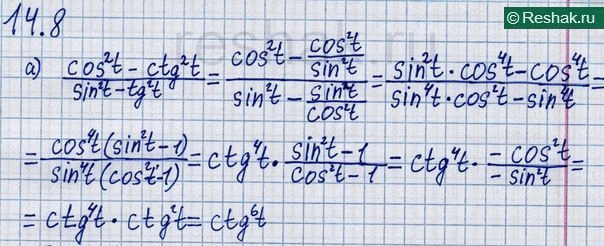 14.8
© Reshak.ru
а) (cos²t - ctg²t)/(sin²t - tg²t) = (cos²t - cos²t/sin²t)/(sin²t - sin²t/cos²t) = (sin²t · cos⁴t - cos⁴t)/(sin⁴t · cos²t - sin⁴t) =
= (cos⁴t (sin²t - 1))/(sin⁴t (cos²t - 1)) = ctg⁴t · (sin²t - 1)/(cos²t - 1) = ctg⁴t · (-cos²t)/(-sin²t) =
= ctg⁴t · ctg²t = ctg⁶t